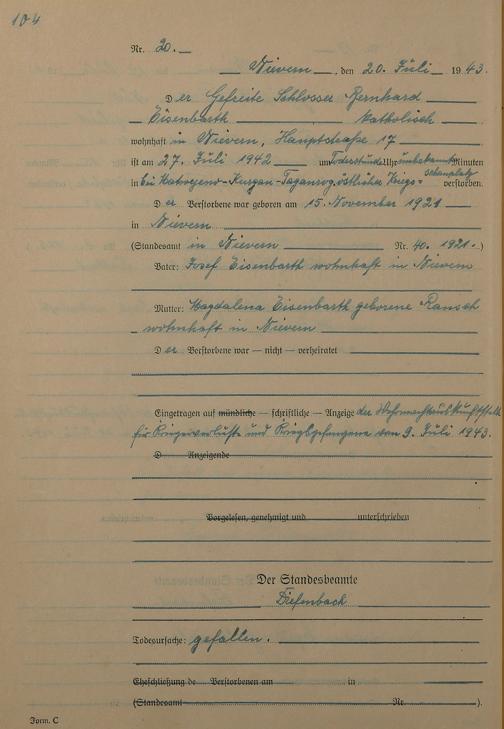 104
Nr. 20.
Nievern, den 20. Juli 1943.
Der Gefreite Schlosser Bernhard
Eisenbarth katholisch
wohnhaft in Nievern, Hauptstraße 17
ist am 27. Juli 1942 um Todesstunde Uhr unbekannt Minuten
in bei Matwejeno-Kurgan-Taganrog, östlicher Kriegs= schauplatz verstorben.
Der Verstorbene war geboren am 15. November 1921
in Nievern
(Standesamt in Nievern Nr. 40. 1921.)
Vater: Josef Eisenbarth wohnhaft in Nievern
Mutter: Magdalena Eisenbarth geborene
wohnhaft in Nievern
Der Verstorbene war — nicht — verheiratet
Eingetragen auf mündliche — schriftliche — Anzeige der Wehrmachtauskunftstelle
für Kriegerverluste und Kriegsgefangene vom 9. Juli 1943.
D Anzeigende
Vorgelesen, genehmigt und unterschrieben
Der Standesbeamte
Diefenbach
Todesursache: gefallen.
Eheschließung de Verstorbenen am in
(Standesamt Nr. ).
Form. C